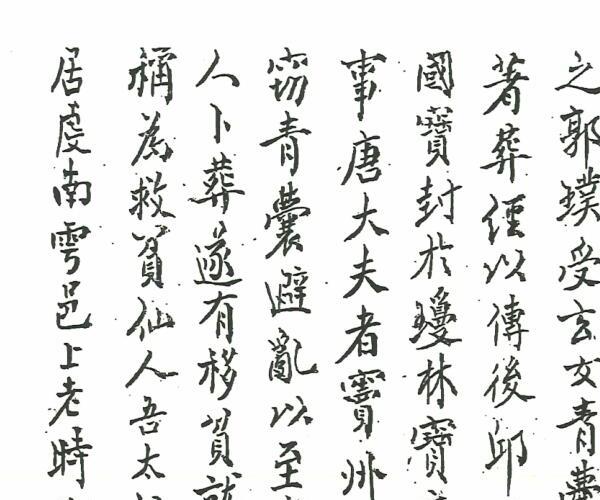 之郭璞受玄女青囊
著葬經以傳後邱
國寶封於瓊林寶
事唐大夫者竇州
竊青囊避亂以至
人卜葬遂有移貧就
稱為救貧仙人吾太
居虔南雩邑上老時